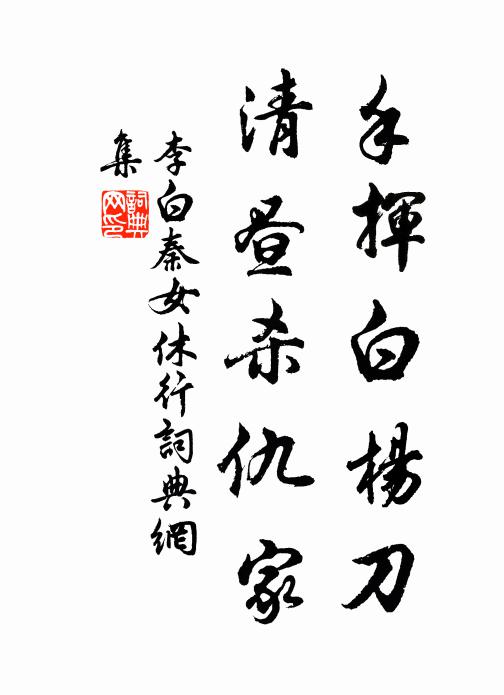 手揮白楊刀
清昼杀仇家
李白秦女休行詞典網
集
詞典
网印